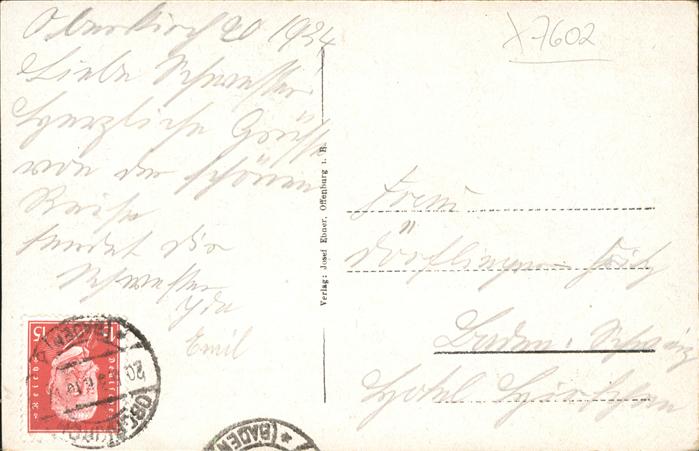 Oberkirch 20 1924
Liebe Schwester!
Herzliche Grüße
von der schönen
Reise
sendet die
Schwester
Ida
Emil
X7602
Verlag: Josef Ebner, Offenburg i. B.
Baden. Schweiz
Hotel
15
Deutsches Reich
(BADEN)
20
OBERKIRCH
(BADEN)